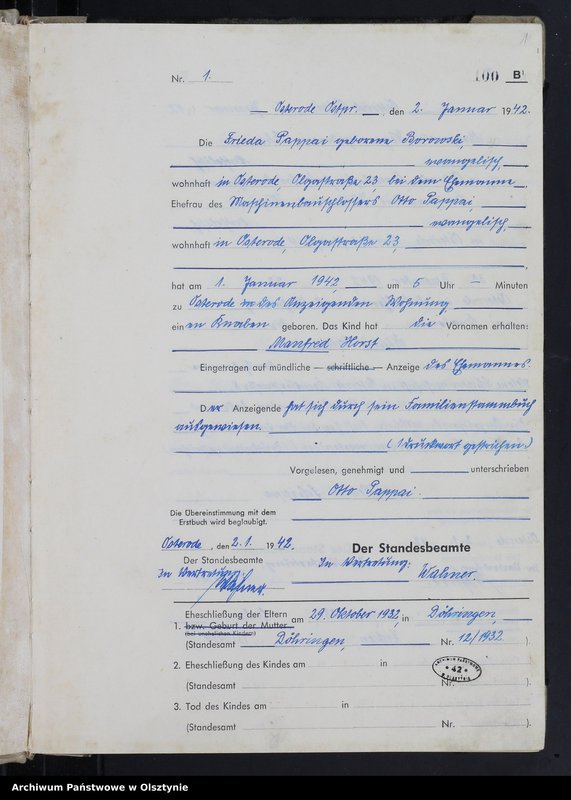 1
Nr. 1.
100 B¹
Osterode Ostpr. , den 2. Januar 1942.
Die Frieda Pappai geborene Borowski
evangelisch,
wohnhaft in Osterode, Olgastraße 23, bei dem Ehemanne,
Ehefrau des Maschinenbauschlossers Otto Pappai
evangelisch,
wohnhaft in Osterode, Olgastraße 23,
hat am 1. Januar 1942 um 5 Uhr — Minuten
zu Osterode in des Anzeigenden Wohnung
einen Knaben geboren. Das Kind hat die Vornamen erhalten:
Manfred Horst
Eingetragen auf mündliche — schriftliche — Anzeige des Ehemannes.
Der Anzeigende hat sich durch sein Familienstammbuch
ausgewiesen.
(1 Druckwort gestrichen.)
Vorgelesen, genehmigt und unterschrieben
Otto Pappai.
Die Übereinstimmung mit dem
Erstbuch wird beglaubigt.
Osterode, den 2.1. 1942.
Der Standesbeamte
Der Standesbeamte
In Vertretung:
In Vertretung:
1. Eheschließung der Eltern am 29. Oktober 1932 in Döhringen,
bzw. Geburt der Mutter
(bei unehelichen Kindern)
(Standesamt Döhringen, Nr. 12/1932 ).
2. Eheschließung des Kindes am in
(Standesamt Nr. ).
ARCHIWUM PAŃSTWOWE
* 42 *
W OLSZTYNIE
3. Tod des Kindes am in
(Standesamt Nr. ).
Archiwum Państwowe w Olsztynie